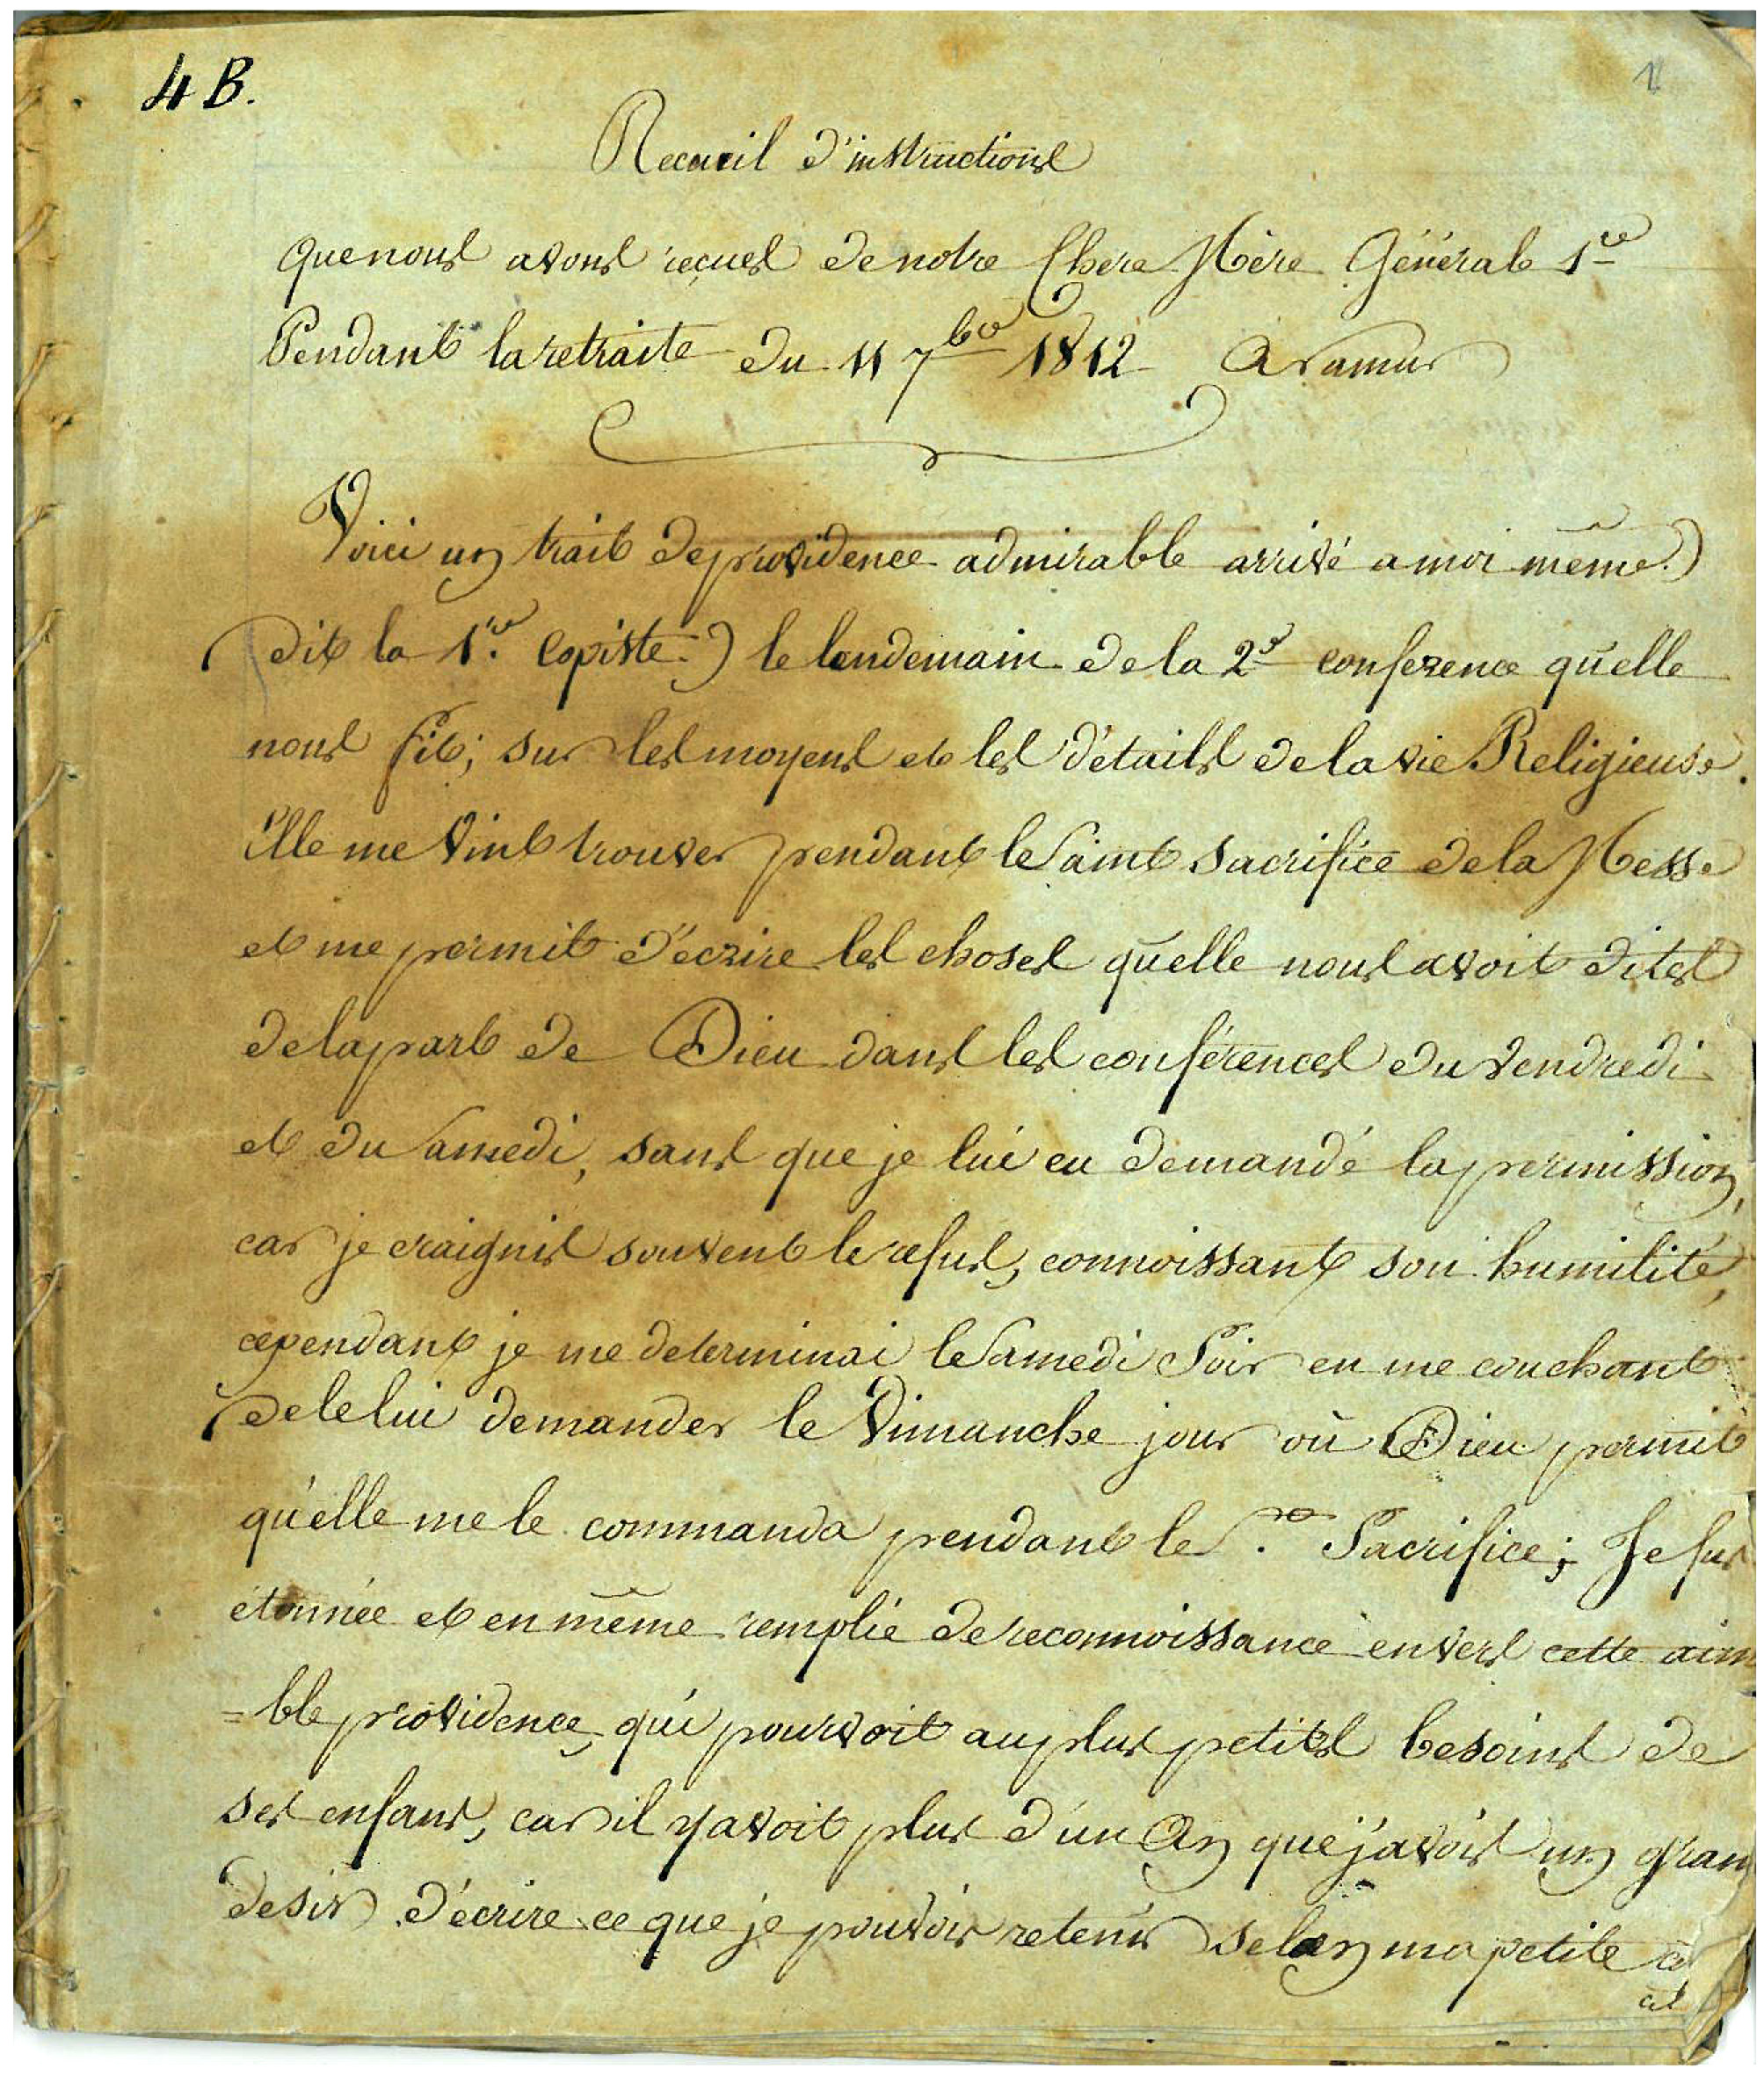 4 B.
1
Recueil d'instructions
que nous avons reçues de notre Chere Mère Générale 1re
Pendant la retraite du 11 7bre 1812 a namur
Voici un trait de providence admirable arrivé a moi même)
(dit la 1re Copiste) le lendemain de la 2e conference qu'elle
nous fit; sur les moyens et les détails de la vie Religieuse.
Elle me vint trouver pendant le Saint sacrifice de la Messe
et me permit d'écrire les choses qu'elle nous avoit dites
de la part de Dieu dans les conférences du vendredi
et du Samedi, sans que je lui eu demandé la permission,
car je craignis souvent le refus, connoissant son humilité,
cependant je me determinai le Samedi Soir en me couchant
de le lui demander le Dimanche jour où Dieu permit
qu'elle me le commanda pendant le St. Sacrifice; Je fus
étonnée et en même remplie de reconnoissance envers cette aima
=ble providence, qui pourvoit au plus petits besoins de
ses enfans, car il y avoit plus d'un An que j'avois un gran
desir d'écrire ce que je pouvois retenir selon ma petite